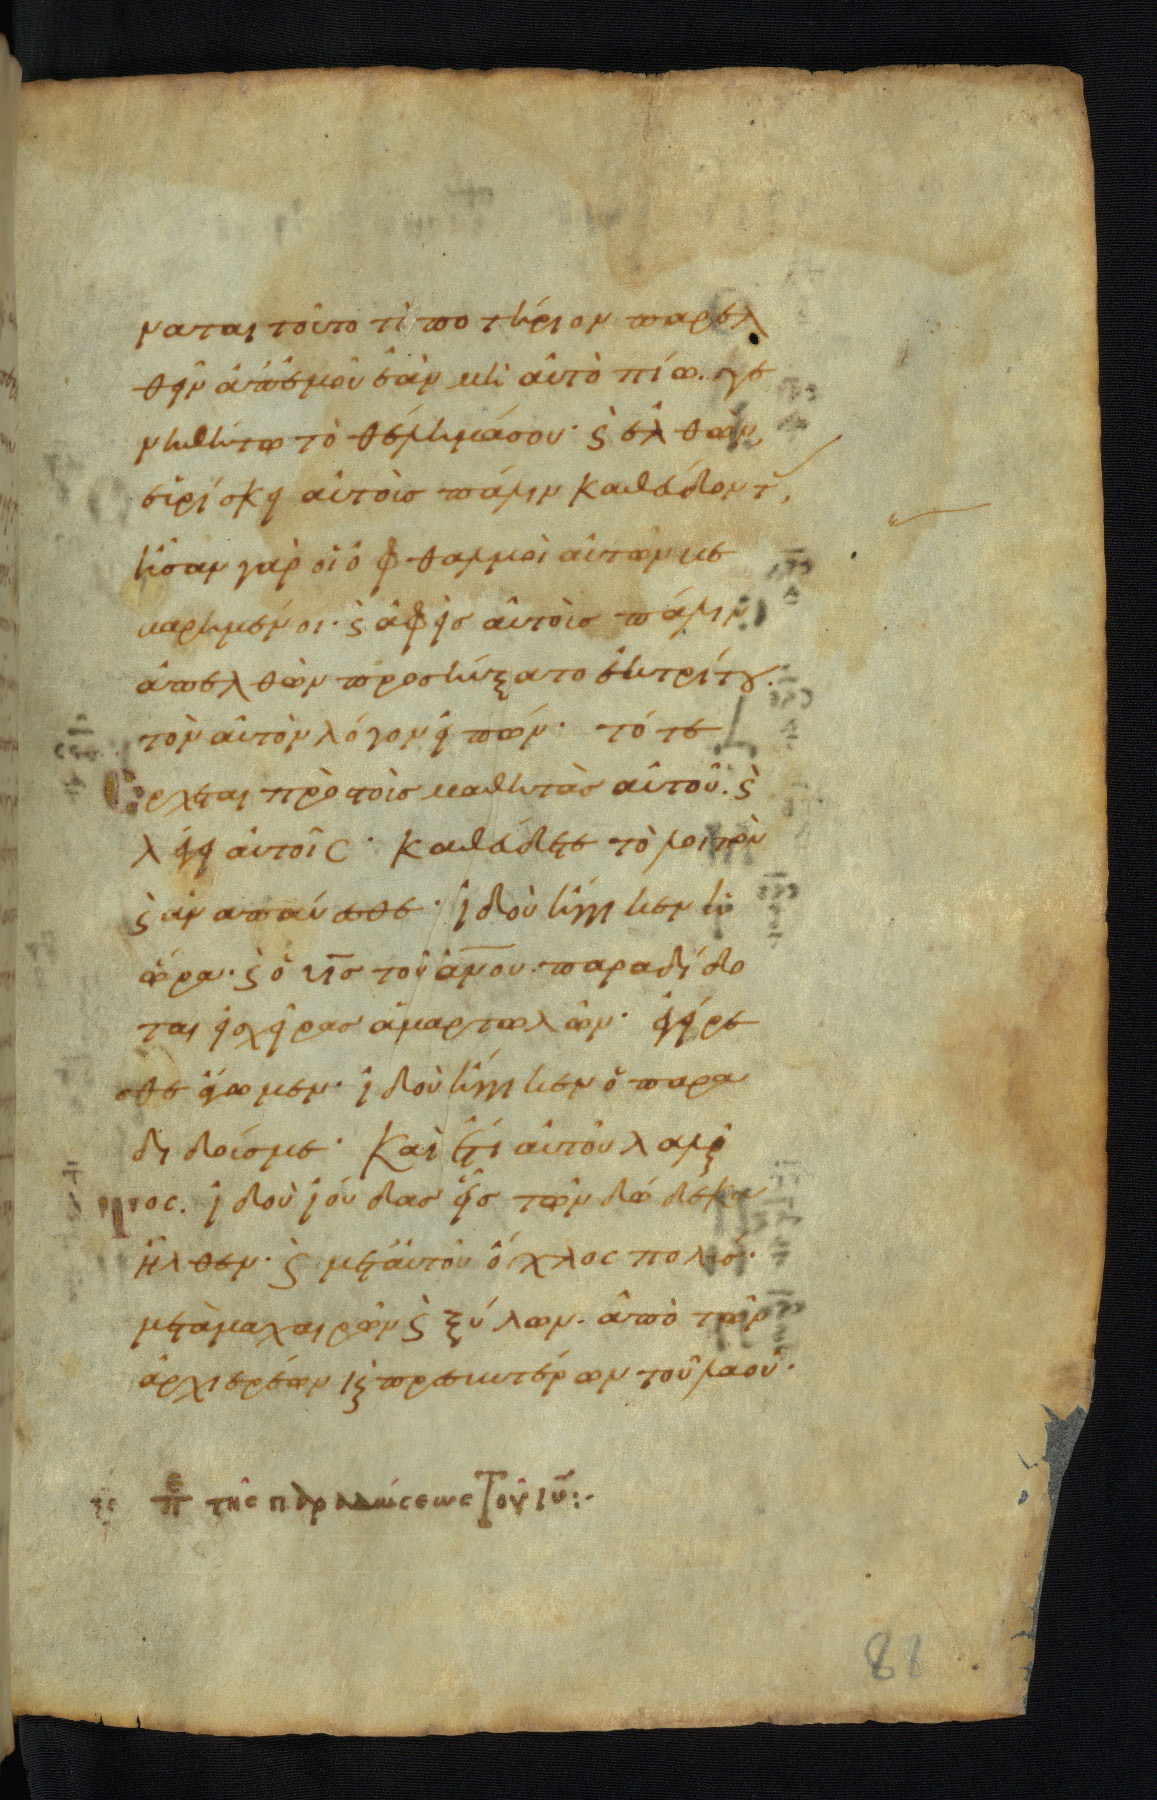 ναται τοῦτο τὸ ποτήριον παρελ
θεῖν ἀπ' ἐμοῦ ἐὰν μὴ αὐτὸ πίω. γε
νηθήτω τὸ θέλημά σου· ϛ ἐλθὼν
εὑρίσκει αὐτοὺς πάλιν καθεύδοντ
ἦσαν γὰρ οἱ ὀφθαλμοὶ αὐτῶν βε
βαρημένοι· ϛ ἀφεὶς αὐτοὺς πάλιν
ἀπελθὼν προσηύξατο ἐκ τρίτου.
τὸν αὐτὸν λόγον εἰπών· τότε
Ἔρχεται πρὸς τοὺς μαθητὰς αὐτοῦ. ϛ
λέγει αὐτοῖς· Καθεύδετε τὸ λοιπὸν
ϛ ἀναπαύεσθε· ἰδοὺ ἤγγικεν ἡ
ὥρα· ϛ ὁ υς τοῦ ανου· παραδίδο
ται εἰς χεῖρας ἁμαρτωλῶν· ἐγείρε
σθε ἄγωμεν· ἰδοὺ ἤγγικεν ὁ παρα
διδούς με· Καὶ ἔτι αὐτοῦ λαλοῦ
ντος. ἰδοὺ ἰούδας εἷς τῶν δώδεκα
ἦλθεν· ϛ μετ' αὐτοῦ ὄχλος πολύς·
μετὰ μαχαιρῶν ϛ ξύλων. ἀπὸ τῶν
ἀρχιερέων ϛ πρεσβυτέρων τοῦ λαοῦ·
τῆς παραδώσεως τοῦ ιυ:-
88